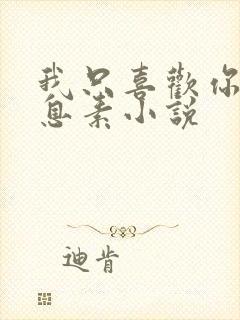 我只喜歡你
息素小説
迪肯